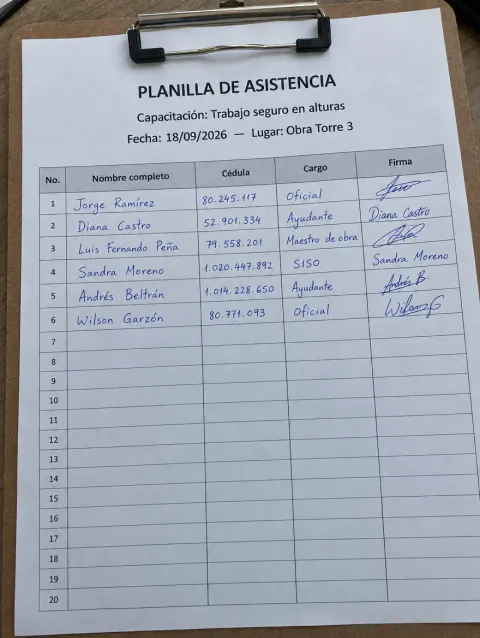 PLANILLA DE ASISTENCIA
Capacitación: Trabajo seguro en alturas
Fecha: 18/09/2026 — Lugar: Obra Torre 3
No. Nombre completo Cédula Cargo Firma
1 Jorge Ramírez 80.245.117 Oficial
2 Diana Castro 52.901.334 Ayudante Diana Castro
3 Luis Fernando Peña 79.558.201 Maestro de obra
4 Sandra Moreno 1.020.447.892 SISO Sandra Moreno
5 Andrés Beltrán 1.014.228.650 Ayudante Andrés B
6 Wilson Garzón 80.771.093 Oficial Wilson G
7
8
9
10
11
12
13
14
15
16
17
18
19
20